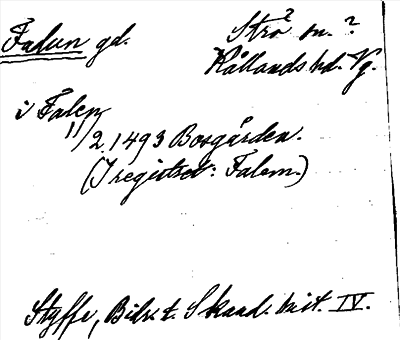 Falun gd.
Strö? sn.?
Kållands hd. Vg.
i Falen
11/2 1493 Bosgården.
(I registret: Falem.)
Styffe, Bidr. t. Skand. hist. IV.